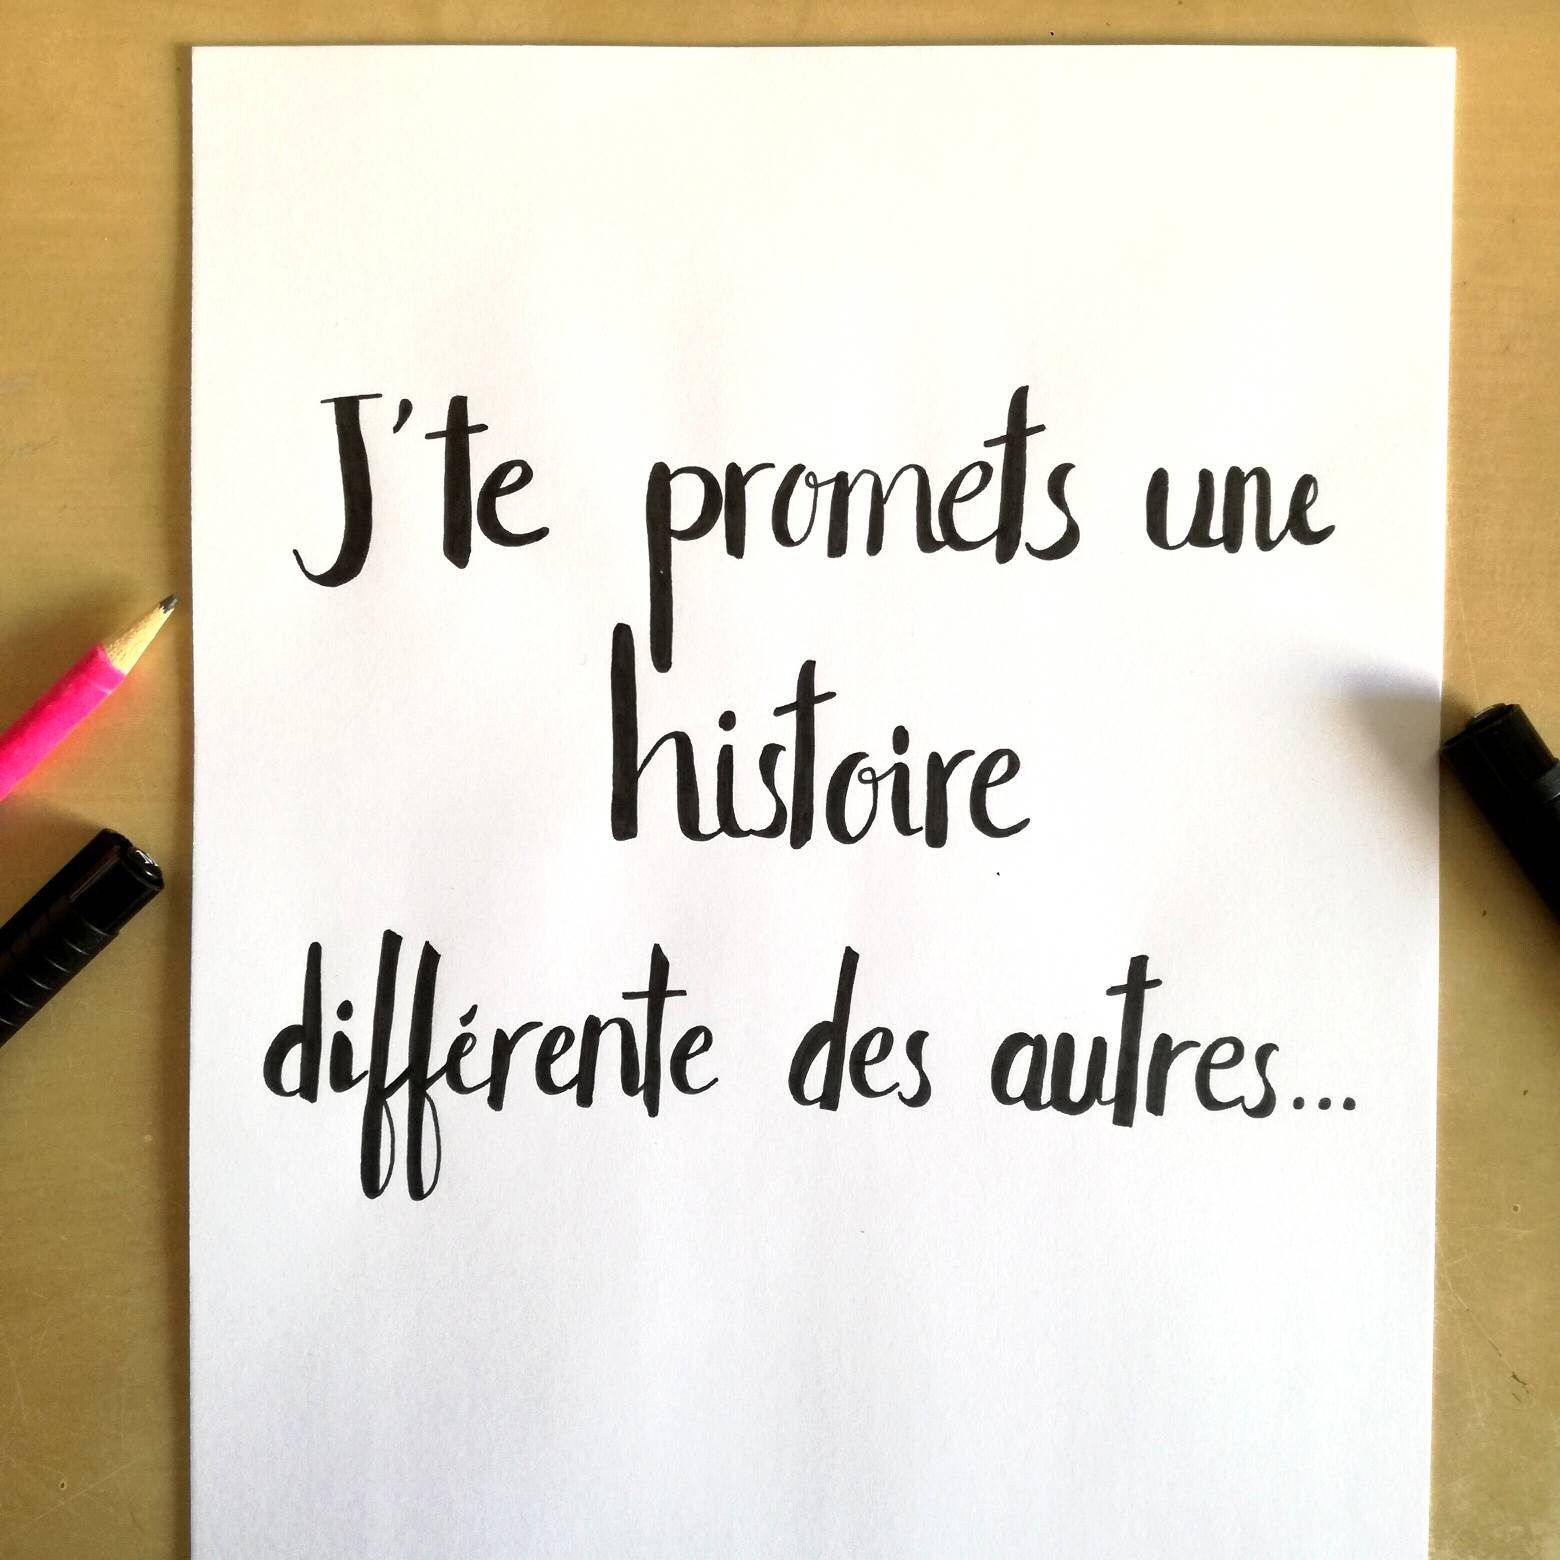 J'te promets une
histoire
différente des autres...